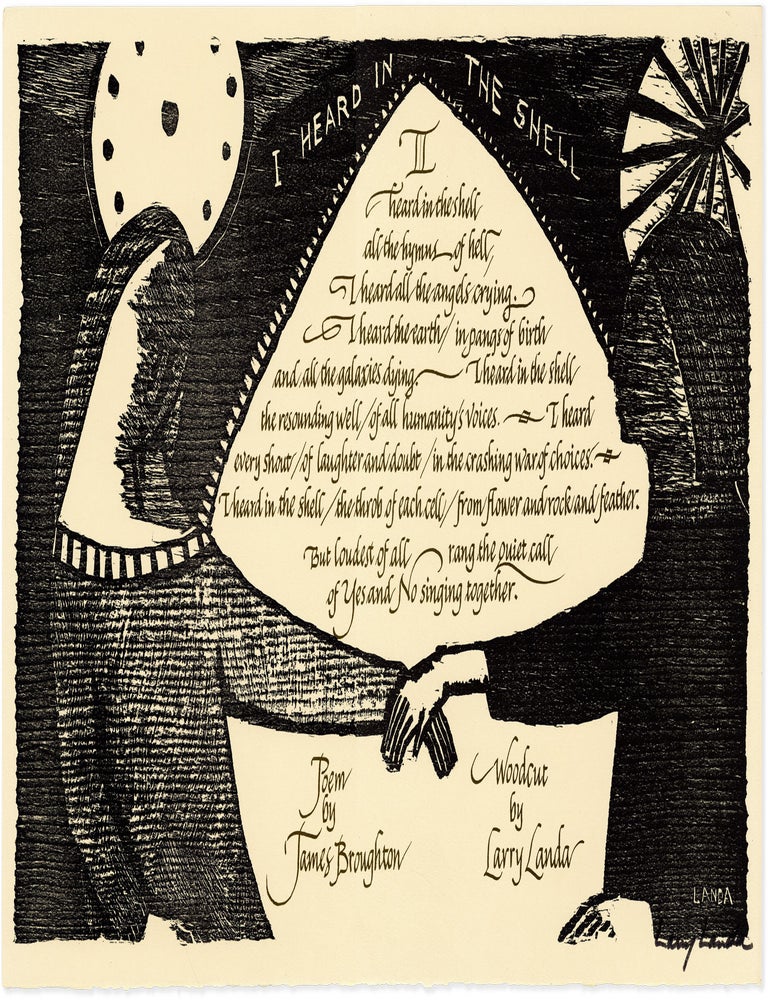 I HEARD IN THE SHELL
II
I heard in the shell
all the hymns of hell,
I heard all the angels crying.
I heard the earth / in pangs of birth
and all the galaxies dying. I heard in the shell
the resounding well / of all humanity's voices. I heard
every shout / of laughter and doubt / in the crashing war of choices.
I heard in the shell / the throb of each cell / from flower and rock and feather.
But loudest of all rang the quiet call
of Yes and No singing together.
Poem
by
James Broughton
Woodcut
by
Larry Landa
LANDA
Larry Landa